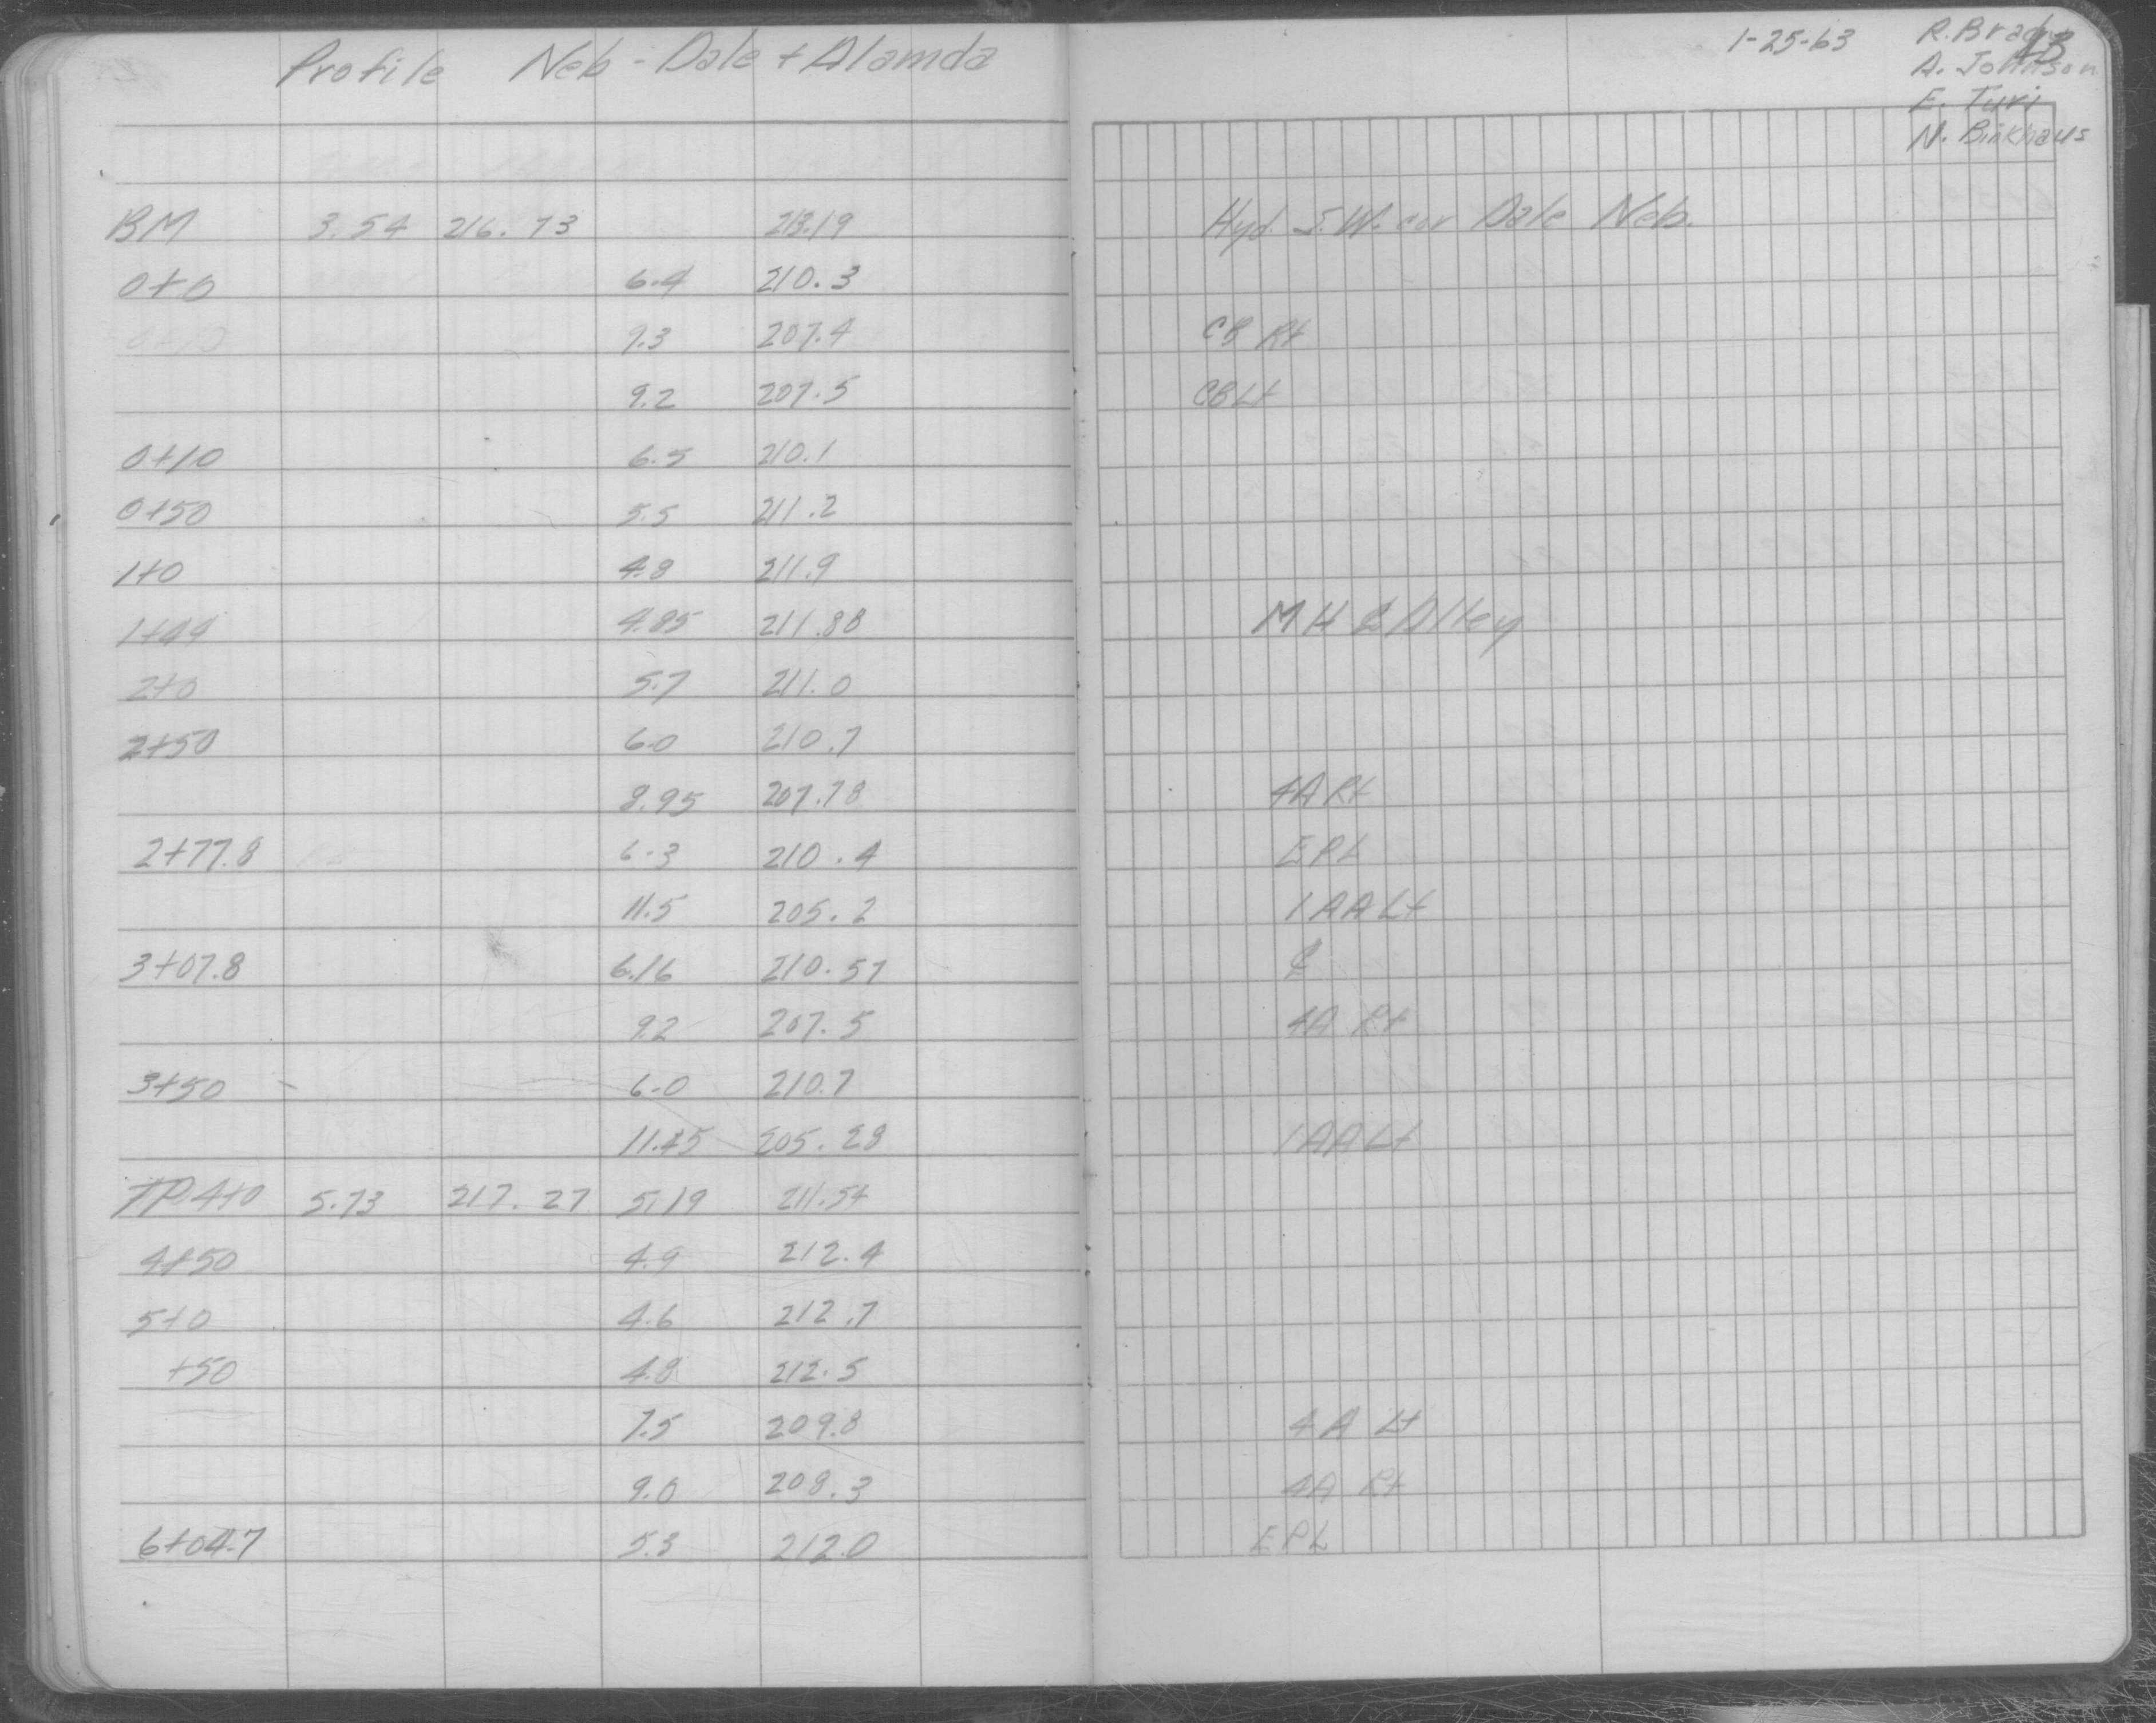 Profile Neb - Dale + Alamda
1-25-63 R. Brady
A. Johnson
E. Turi
N. Binkhaus
BM 3.54 216.73 213.19 Hyd. S.W. cor Dale Neb.
0+0 6.4 210.3
9.3 207.4 CB Rt
9.2 207.5 CB Lt
0+10 6.5 210.1
0+50 5.5 211.2
1+0 4.8 211.9
1+49 4.85 211.88 MH ℄ Alley
2+0 5.7 211.0
2+50 6.0 210.7
8.95 207.78 4A Rt
2+77.8 6.3 210.4 EPL
11.5 205.2 1AA Lt
3+07.8 6.16 210.57 ℄
9.2 207.5 4A Rt
3+50 6.0 210.7
11.45 205.28 1AA Lt
TP 4+0 5.73 217.27 5.19 211.54
4+50 4.9 212.4
5+0 4.6 212.7
+50 4.8 212.5
7.5 209.8 4A Lt
9.0 208.3 4A Rt
6+04.7 5.3 212.0 EPL